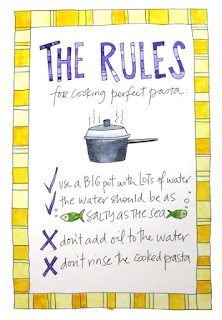 THE RULES
for cooking perfect pasta:
use a BIG pot with LOTS of water
the water should be as
SALTY AS THE SEA
don't add oil to the water
don't rinse the cooked pasta